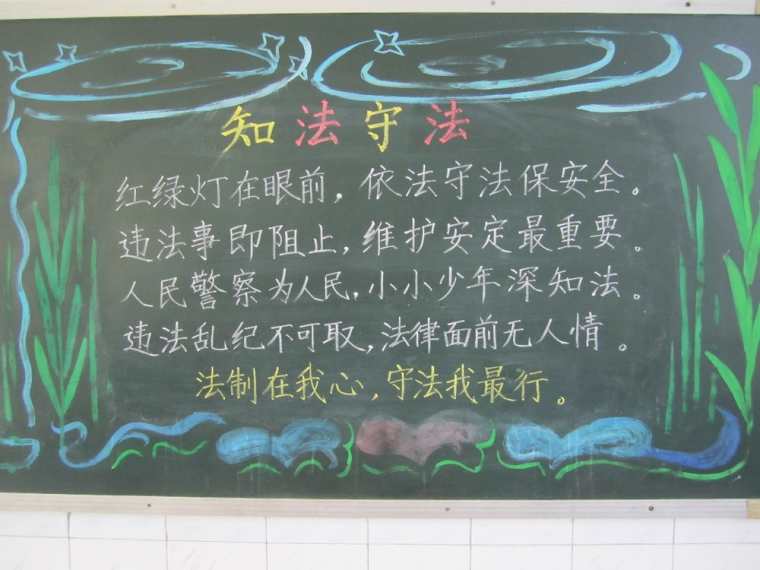 知法守法
红绿灯在眼前，依法守法保安全。
违法事即阻止，维护安定最重要。
人民警察为人民，小小少年深知法。
违法乱纪不可取，法律面前无人情。
法制在我心，守法我最行。